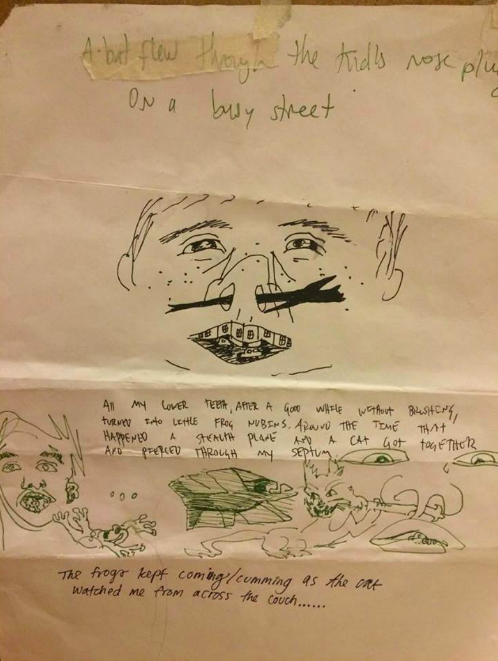 A bat flew through the kid's nose plug
On a busy street
All my lower teeth, after a good while without brushing,
turned into little frog nubins. Around the time that
happened a stealth plane and a cat got together
and pierced through my septum
The frogs kept coming/cumming as the cat
watched me from across the couch......